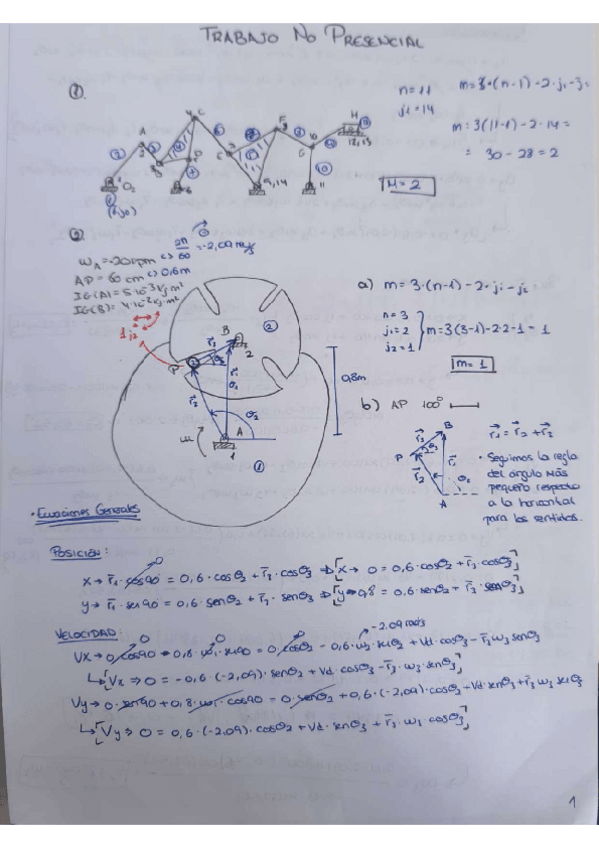 TRABAJO NO PRESENCIAL
①.
n = 11
j₁ = 14
m = 3·(n-1) - 2·j₁ - j₂
m = 3(11-1) - 2·14 =
= 30 - 28 = 2
M = 2
A
C
D
E
F
G
H
O₂
9,14
10
11
12,13
②
2π
60
= -2,09 rad/s
AP = 60 cm ⇔ 0,6m
IG(A) = 5·10⁻³ kg m²
1 j₂
P
B
2
A
1
0,8m
a) m = 3·(n-1) - 2·j₁ - j₂
n = 3
j₁ = 2
j₂ = 1
m = 3(3-1) - 2·2 - 1 = 1
m = 1
b) AP 100°
r₁ = r₂ + r₃
· Seguimos la regla
del ángulo más
pequeño respecto
a la horizontal
para los sentidos.
· Ecuaciones Generales
POSICIÓN:
x → r₁·cos90 = 0,6·cosθ₂ + r₃·cosθ₃ ⇒ [x → 0 = 0,6·cosθ₂ + r₃·cosθ₃]
y → r₁·sen90 = 0,6·senθ₂ + r₃·senθ₃ ⇒ [y → 0,8 = 0,6·senθ₂ + r₃·senθ₃]
VELOCIDAD:
-2.09 rad/s
↳ [Vx ⇒ 0 = -0,6·(-2,09)·senθ₂ + Vd·cosθ₃ - r₃·w₃·senθ₃]
Vy → 0·sen90 + 0,8·w₁·cos90 = 0·senθ₂ + 0,6·(-2,09)·cosθ₂ + Vd·senθ₃ + r₃ w₃
↳ [Vy ⇒ 0 = 0,6·(-2,09)·cosθ₂ + Vd·senθ₃ + r₃·w₃ cosθ₃]
1